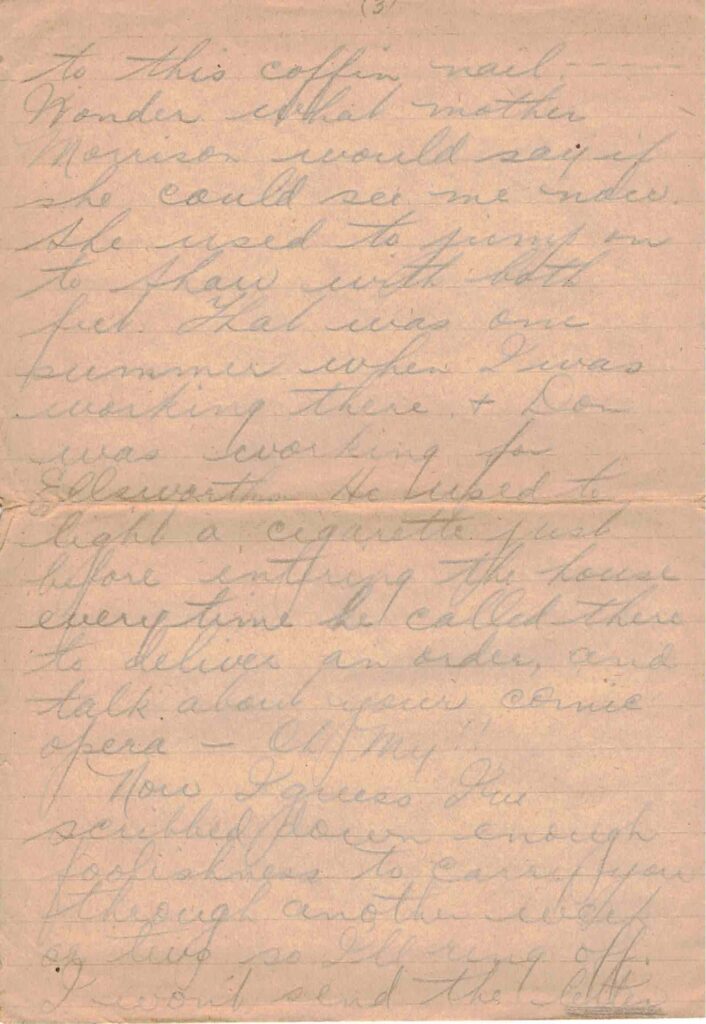 (3)
to this coffin nail. ----
Wonder what mother
Morrison would say if
she could see me now.
She used to jump on
to Shaw with both
feet. That was one
summer when I was
working there, + Don
was working for
Ellsworth. He used to
light a cigarette just
before entering the house
every time he called there
to deliver an order, and
talk about your comic
opera - Oh My!!
Now I guess I've
scribbed down enough
foolishness to carry you
through another week
or two so I'll ring off.
I won't send the letter